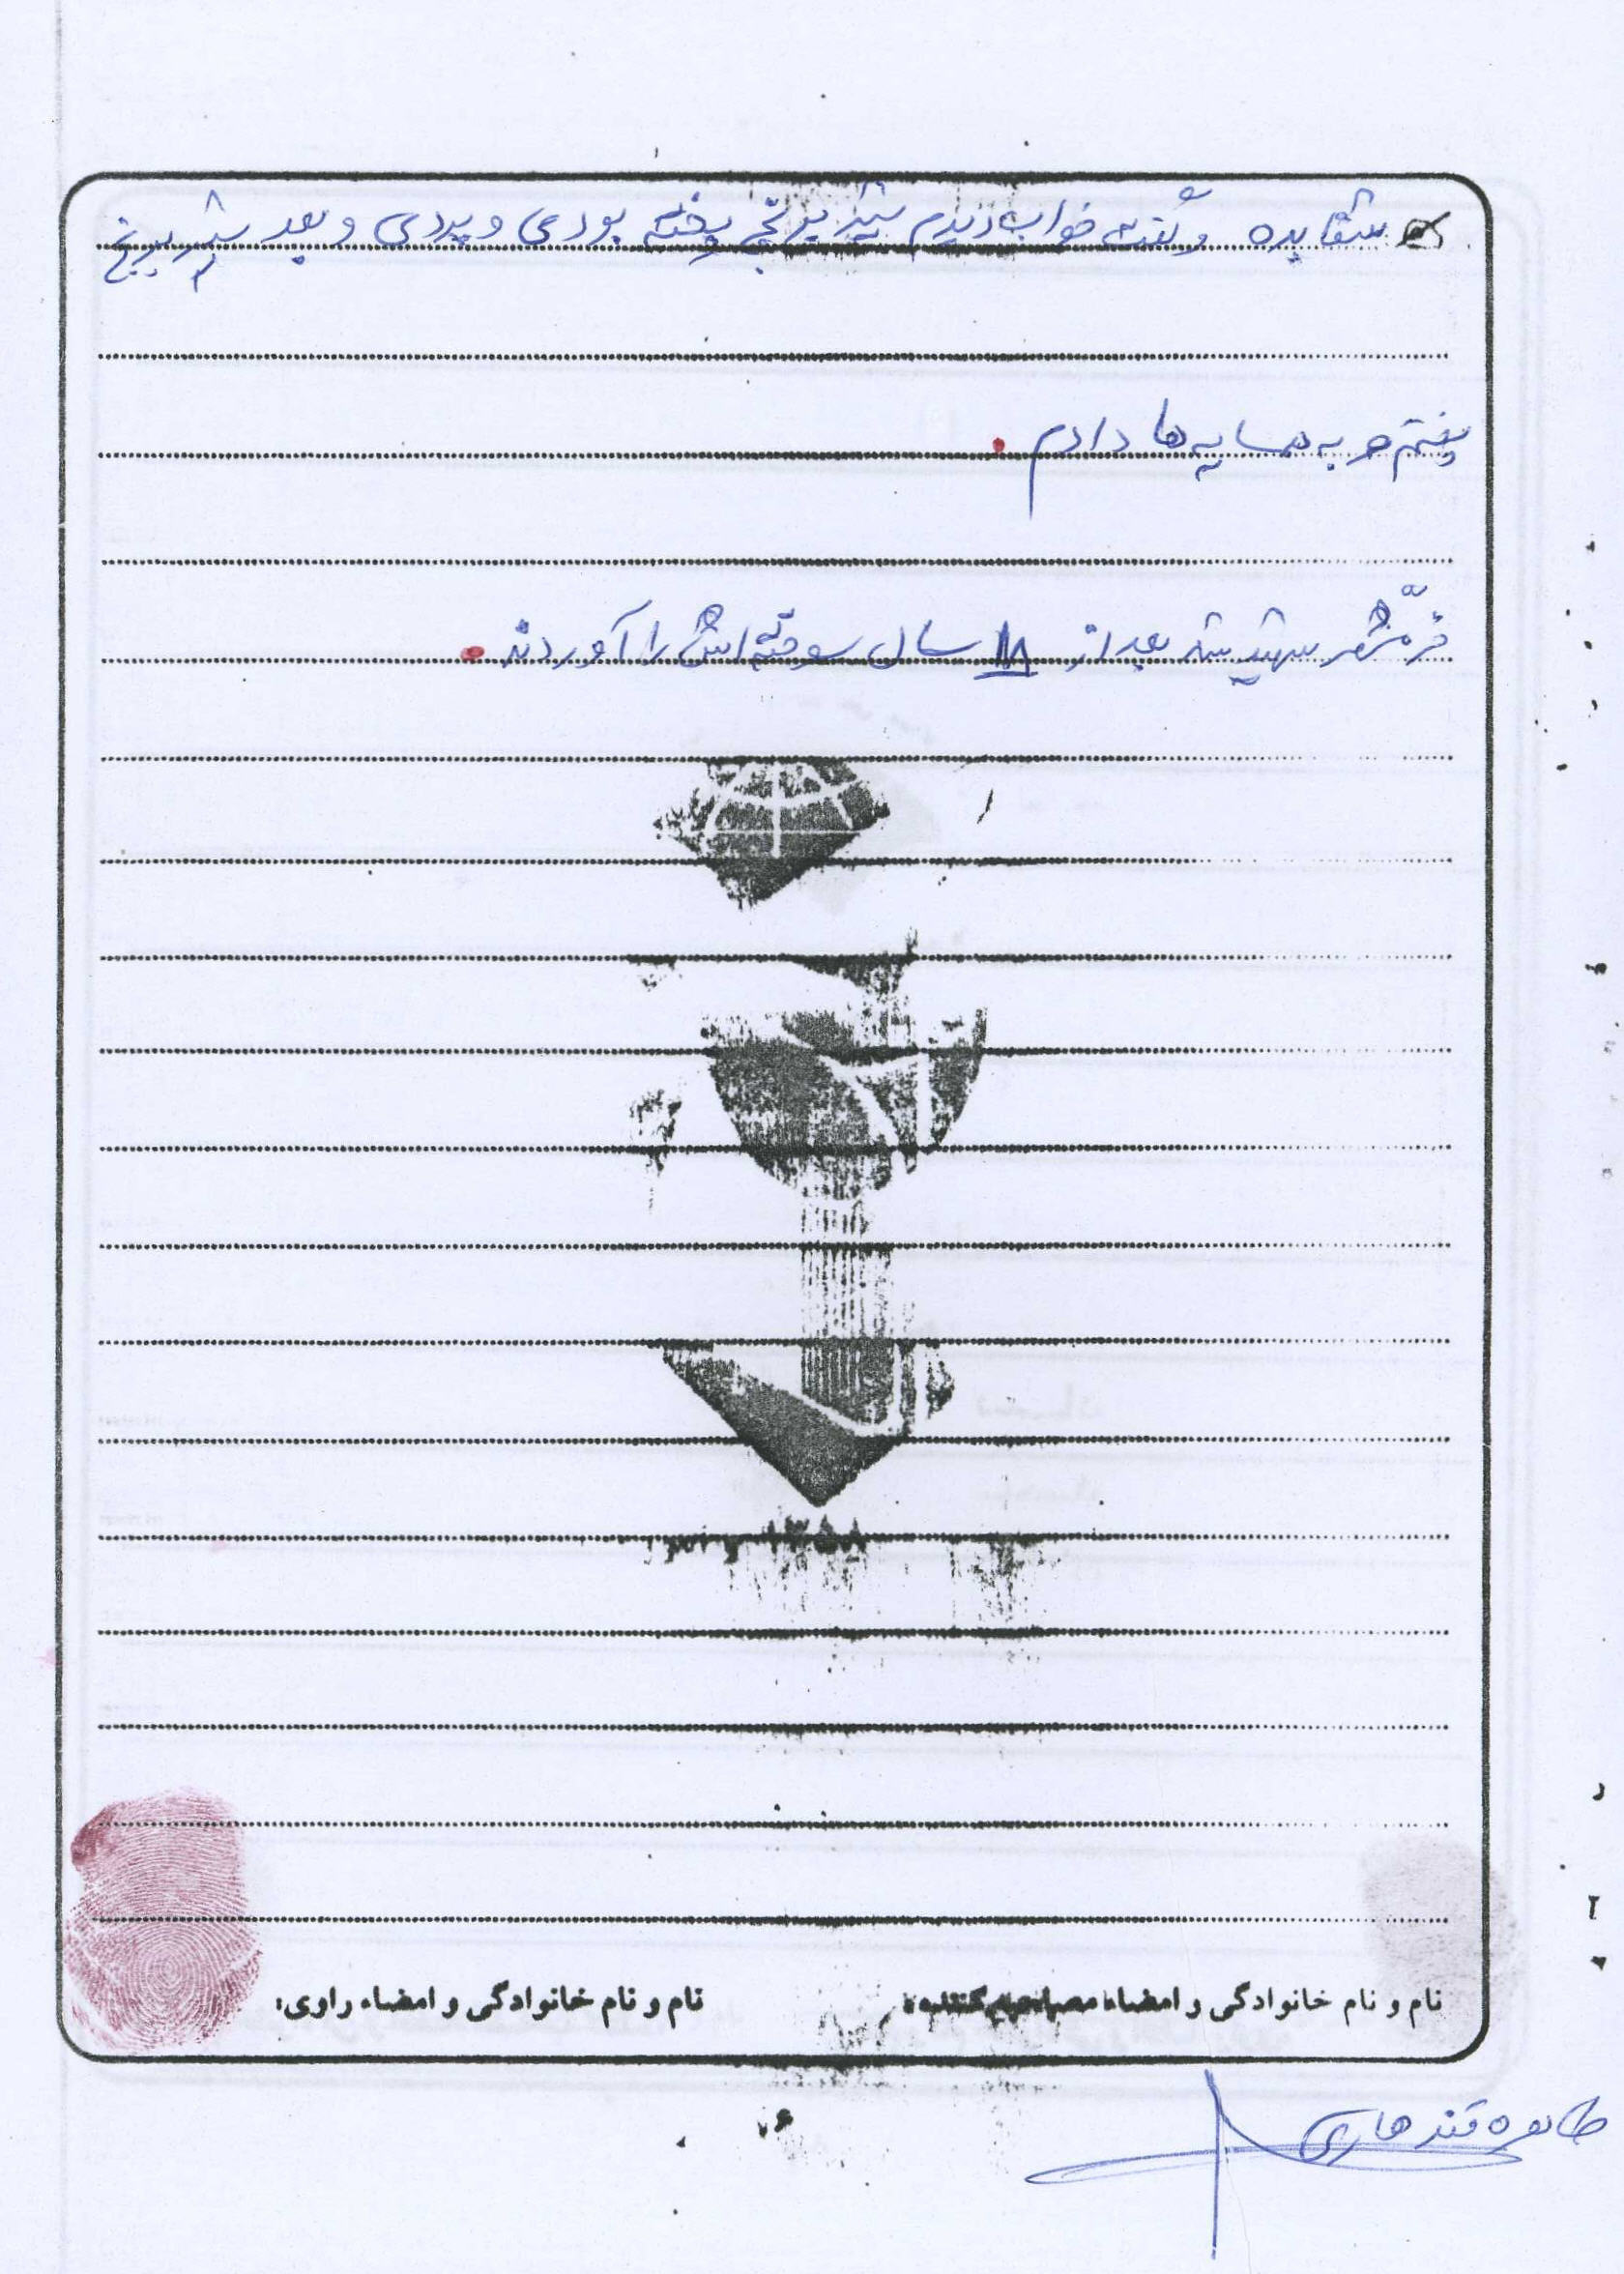 شفا بده و گفته خواب دیدم شیر برنج پخته بودی و بردی و بعد شیر برنج
پختم و به همسایه ها دادم .
خرمشهر شهید شد بعد از ۱۸ سال سوخته اش را آوردند .
نام و نام خانوادگی و امضاء مصاحبه کننده:
نام و نام خانوادگی و امضاء راوی:
طاهره قندهاری